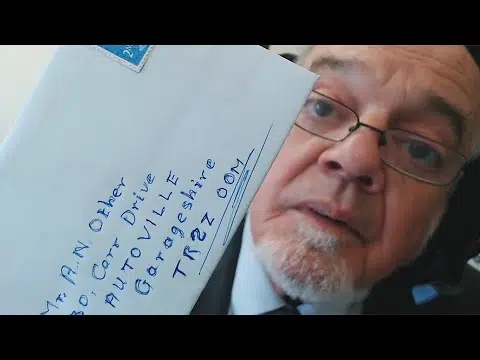 Mr. A.N. Other
30, Carr Drive
AUTOVILLE
Garageshire
TR2Z OOM